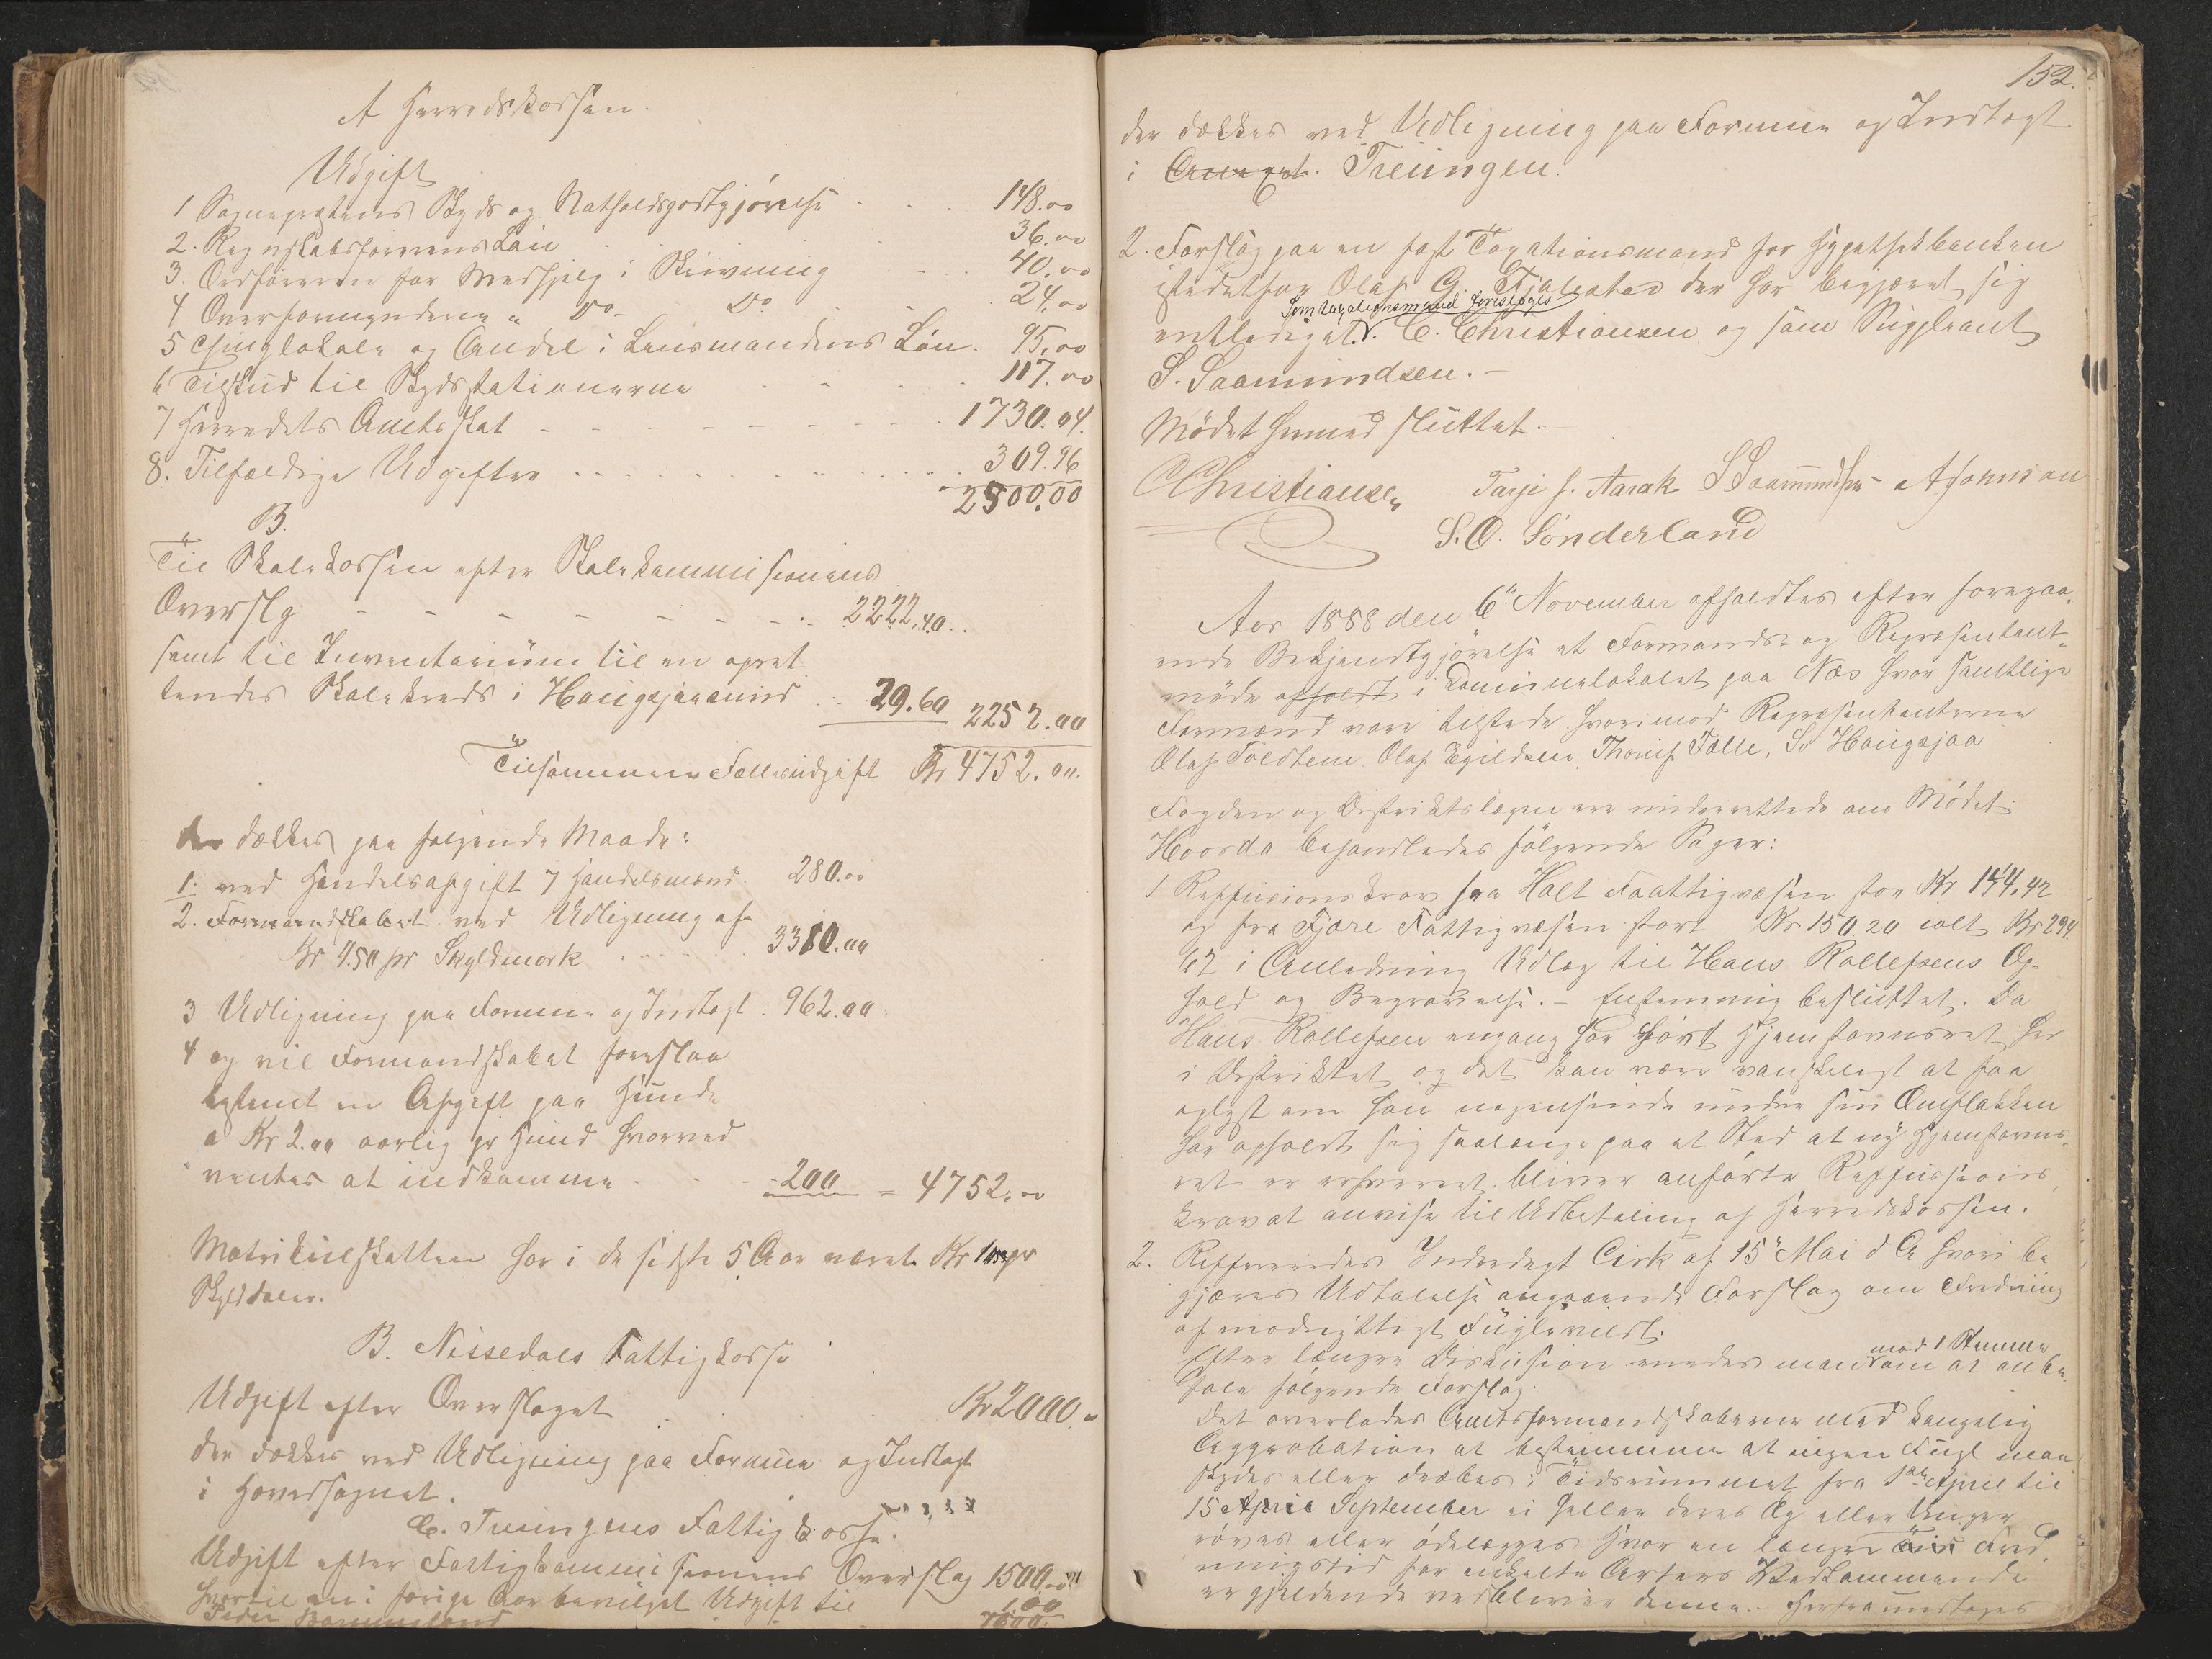 A Herredskassen.
Udgift
1 Sogneprestens Skyds og Natholdsgodtgjørelse 148.00
2. Regnskabsførerens Løn 36.00
3. Ordføreren for Medhjelp i Skrivning 40.00
4 Overformynderne " Do Do 24.00
5 Thinglokale og Andel i Lensmandens Løn. 95.00
6 Tilskud til Skydsstationerne 117.00
7 Herredets Amtsskat 1730.04.
8. Tilfældige Udgifter 309.96
2500.00
B.
Til Skolekassen efter Skolekommisionens
Overslg 2222,40
samt til Inventarium til en opret
tendes Skolekreds i Haugsjaasund 29.60 2252.00
Tilsammen Fællesudgift Kr 4752.00.
der dækkes paa følgende Maade:
1. ved Handelsafgift 7 Handelsmænd 280.00
2. Formandskabet ved Udligning af
Kr 4.50 pr Skyldmark 3310.00
3 Udligning paa Formue og Indtægt 962.00
4 og vil Formandskabet foreslaa
bestemt en Afgift paa Hunde
a Kr 2.00 aarlig pr Hund hvorved
ventes at indkomme 200 = 4752,00
Matrikulskatten har i de sidste 5 Aar været Kr pr
Skylddaler.
B. Nissedals Fattigkasse
Udgift efter Overslaget Kr 2000.00
der dækkes ved Udligning paa Formue og Indtægt
i Hovedsognet.
C. Treungens Fattigkasse.
Udgift efter Fattigkommisionens Overslag 1500.00
hvortil en i forige Aar bevilget Udgift til
Peder 100
1600.
152.
der dækkes ved Udligning paa Formue og Indtægt
i Annexet. Treungen.
2. Forslag paa en fast Taxationsmand for Hypothekbanken
istedetfor Olaf G. Fjalestad der har begjæret sig
Som taxationsmand foresloges
entlediget. C. Christiansen og som Suppleant
S. Saamundsen. -
Mødet hermed sluttet.
CChristiansen Tarje J. Aarak SSaamundsen A Johnsen
S. O. Sønderland
Aar 1888 den 6te November afholdtes efter foregaa
ende Bekjendtgjørelse et Formands- og Repræsentant
møde afholdt i Kommunelokalet paa Næs hvor samtlige
Formænd vare tilstede hvorimod Repræsentanterne
Olaf Toldtem Olaf Egildsen, Thorvif Fælle, So Haugsjaa
Fogden og Distriktslægen ere underrettede om Mødet.
Hvorda behandledes følgende Sager:
1. Reffusionskrav fra Holt Faattigvæsen stor Kr 144,42
og fra Fjære Fattigvæsen stort Kr 150.20 ialt Kr 294.
62 i Anledning Udlæg til Hans Rollefsens Op-
hold og Begravelse. - Enstemmig besluttet. Da
Hans Rollefsen engang har havt Hjemstavnsret her
i Distriktet og det kan være vanskeligt at faa
oplyst om han nogensinde under sin Omflakken
har opholdt sig saalænge paa et Sted at ny Hjemstavns-
ret er erhvervet bliver anførte Reffussions
kravet anvise til Udbetaling af Herredskassen.
2. Reffereredes Inderdept Cirk af 15de Mai d A hvori be
gjæres Udtalelse angaaende Forslag om Fredning
af modnyttigt Fuglevildt.
mod 1 Stemme
Efter længre Diskusion enedes man om at anbe
fale følgende Forslag:
Det overlades Amtsformandskaberne med kongelig
Approbation at bestemme at ingen Fugl maa
skydes eller dræbes i Tidsrummet fra 1ste April til
15 April September ei heller deres Eg eller Unger
røves eller ødelægges. Hvor en længre Tid Fred
ningstid for enkelte Arters Vedkommende
er gjeldende vedbliver denne. - Herfra undtages